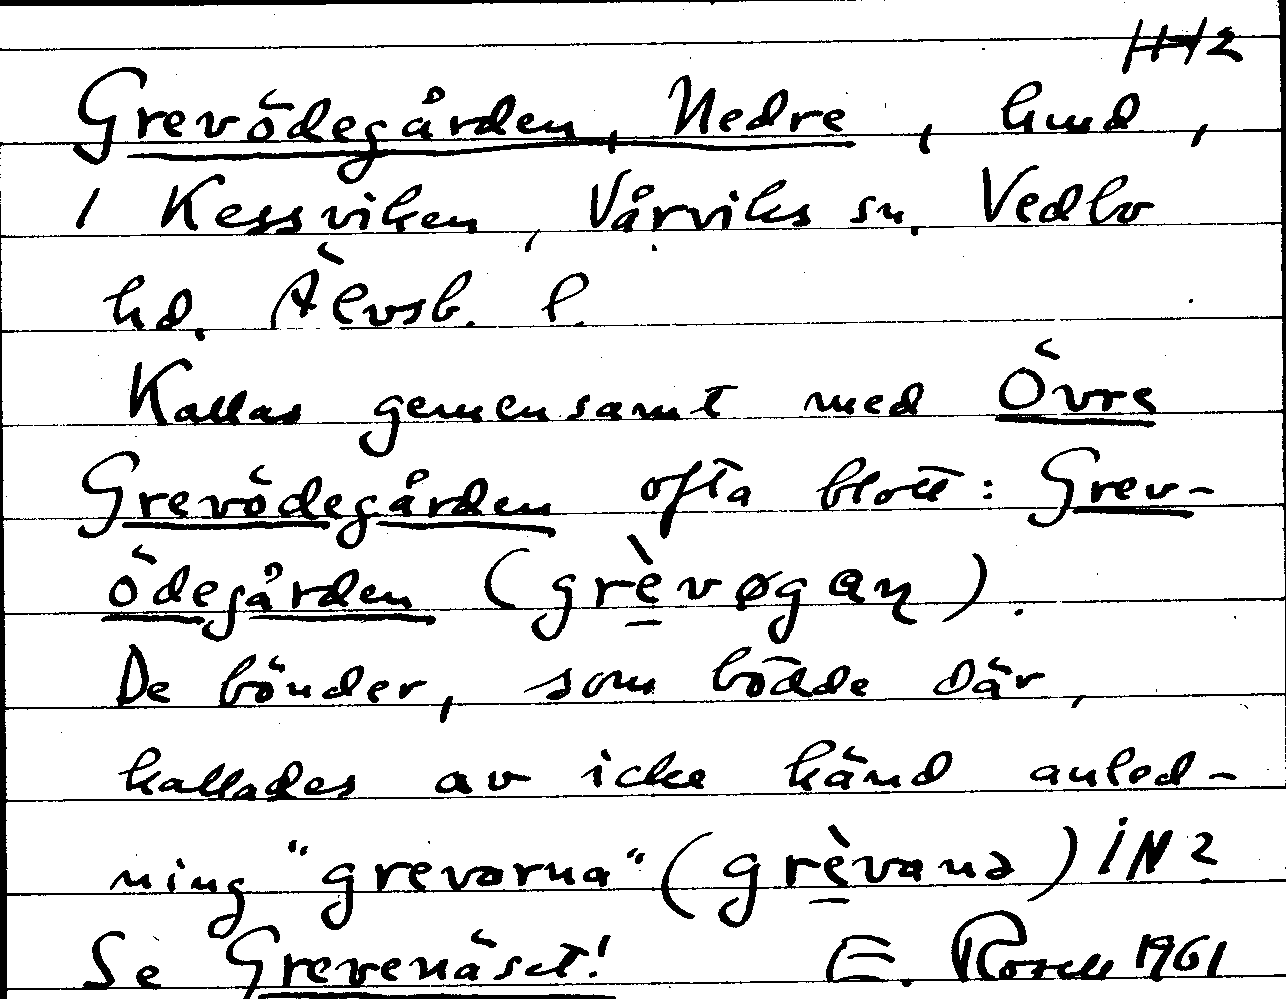 Grevödegården, Nedre, hmd,
i Kessviken, Vårviks sn. Vedbo
hd. Älvsb. l.
Kallas gemensamt med Övre
Grevödegården ofta blott: Grev-
ödegården (grèvøgaɳ).
De bönder, som bodde där,
kallades av icke känd anled-
ning "grevarna" (grèvanə) IN?
Se Grevenäset! E. Rosell 1961